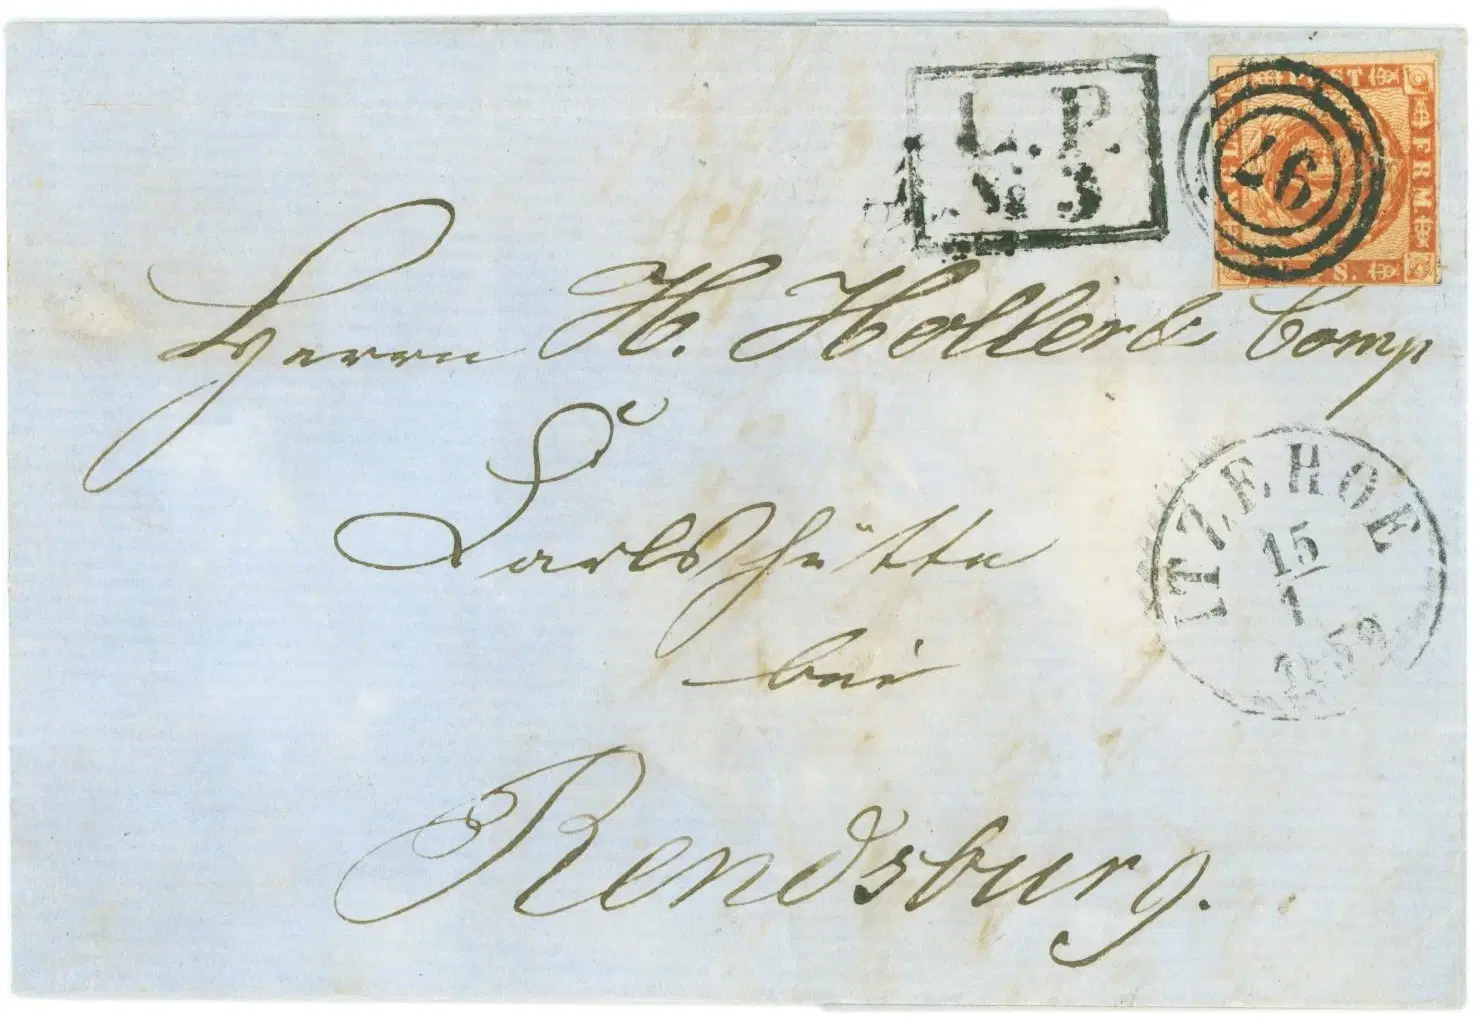 L. P.
№ 3
POST
FRM:
S.
Herrn H. Holler & Comp
Carlshütte
bei
Rendsburg.
ITZEHOE
15
1